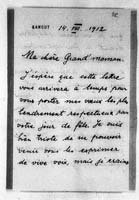 RANGOUT 14. VII. 1912
Ma chère Grand'maman.
J'espère que cette lettre
vous arrivera à temps pour
vous porter mes vœux les plus
tendrement respectueux pour
votre jour de fête. Je suis
bien triste de ne pouvoir
venir vous les exprimer
de vive voix, mais je crains